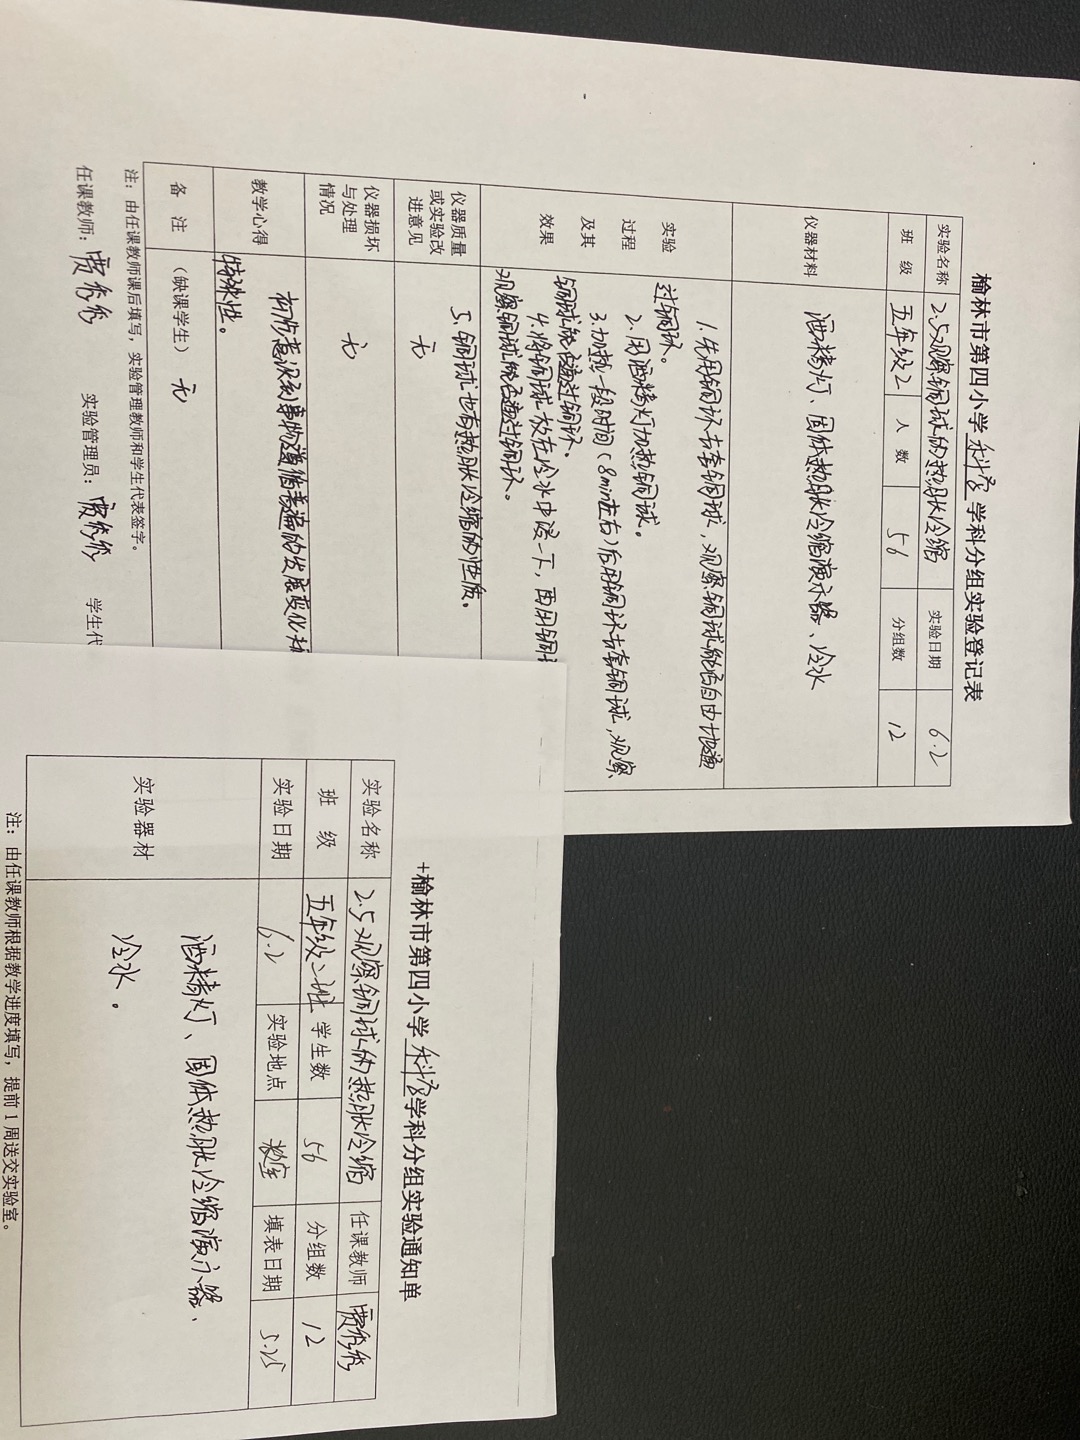 榆林市第四小学科学学科分组实验登记表
实验名称 2.5观察铜球的热胀冷缩 实验日期 6.2
班 级 五年级2 人 数 56 分组数 12
仪器材料 酒精灯、固体热胀冷缩演示器、冷水
实验过程及其效果
1.先用铜环去套铜球,观察铜球能否自由地通
过铜环。
2.用酒精灯加热铜球。
3.加热一段时间(8min左右)后用铜环去套铜球,观察
铜球能否通过铜环。
4.将铜球放在冷水中浸一下,再用铜
观察铜球能否通过铜环。
5.铜球也有热胀冷缩的性质。
仪器质量或实验改进意见 无
仪器损坏与处理情况 无
教学心得
有伤意识到事物遵循着普遍的发展变化
特殊性。
备 注 (缺课学生) 无
注:由任课教师课后填写,实验管理教师和学生代表签字。
任课教师: 贾秀秀 实验管理员: 贾秀秀 学生代
+榆林市第四小学科学学科分组实验通知单
实验名称 2.5观察铜球的热胀冷缩 任课教师 贾秀秀
班 级 五年级二班 学生数 56 分组数 12
实验日期 6.2 实验地点 教室 填表日期 5.25
实验器材
酒精灯、固体热胀冷缩演示器、
冷水。
注:由任课教师根据教学进度填写,提前1周送交实验室。